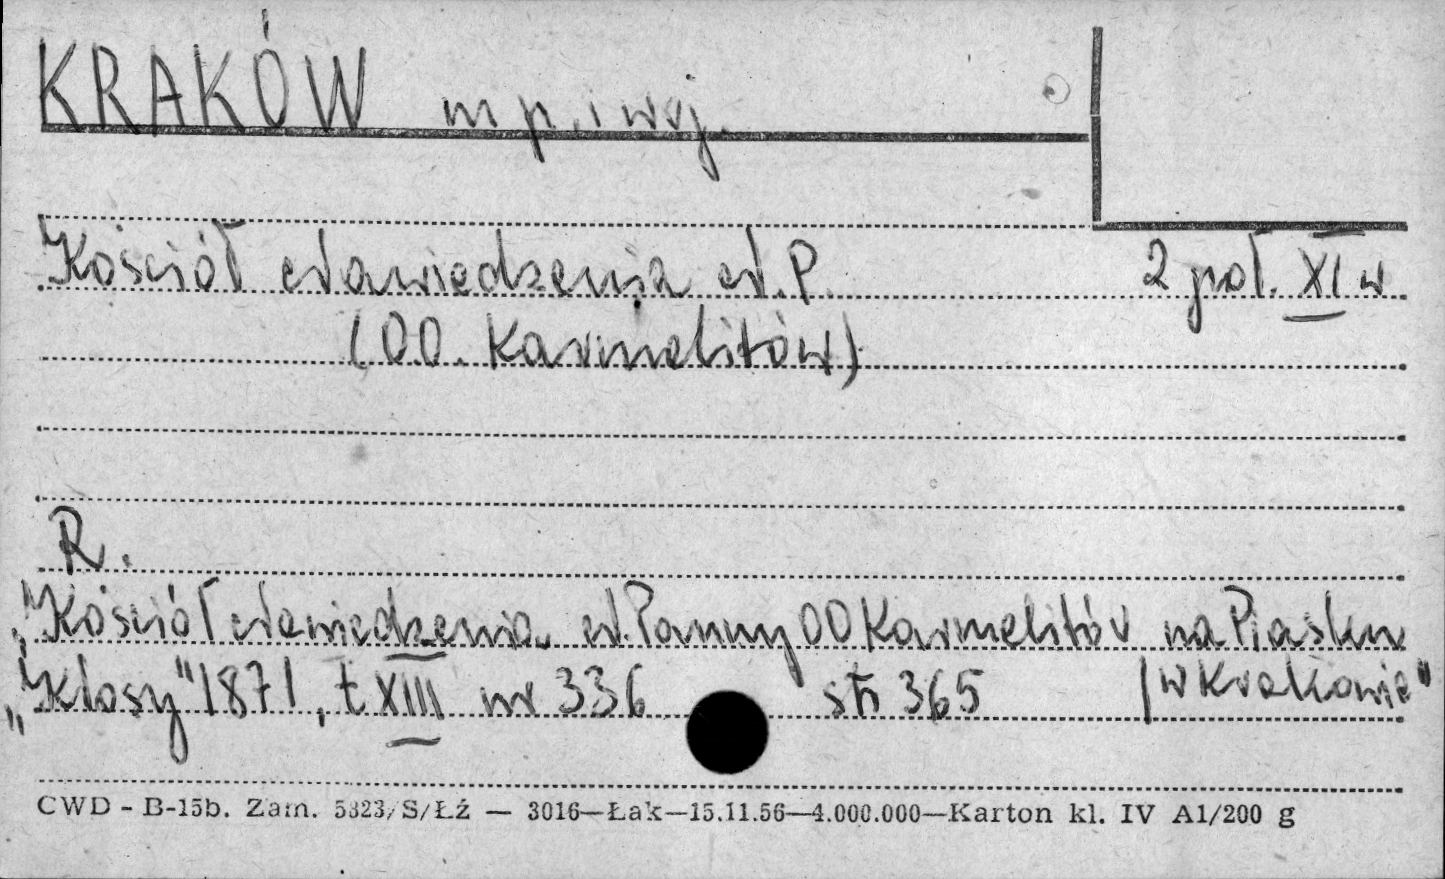 KRAKÓW m p. i woj.
Kościół Nawiedzenia N. P. 2 poł. XI w
(OO. Karmelitów)
R.
„Kościół Nawiedzenia N. Panny OO Karmelitów na Piasku
„Kłosy" 1871, t XIII nr 336 str 365 /w Krakowie"
CWD - B-15b. Zam. 5323/S/Łź — 3016—Łak—15.11.56—4.000.000—Karton kl. IV A1/200 g